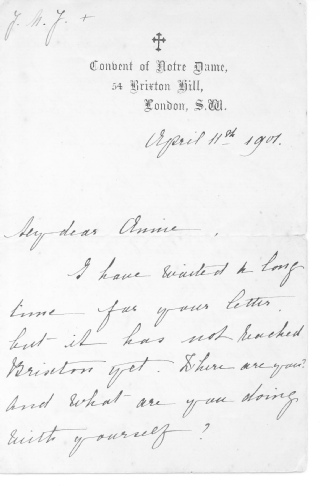 J. M. J. +
Convent of Notre Dame,
54 Brixton Hill,
London, S.W.
April 11th 1901.
My dear Annie,
I have waited a long
time for your letter,
but it has not reached
Brixton yet. Where are you?
And what are you doing
with yourself?